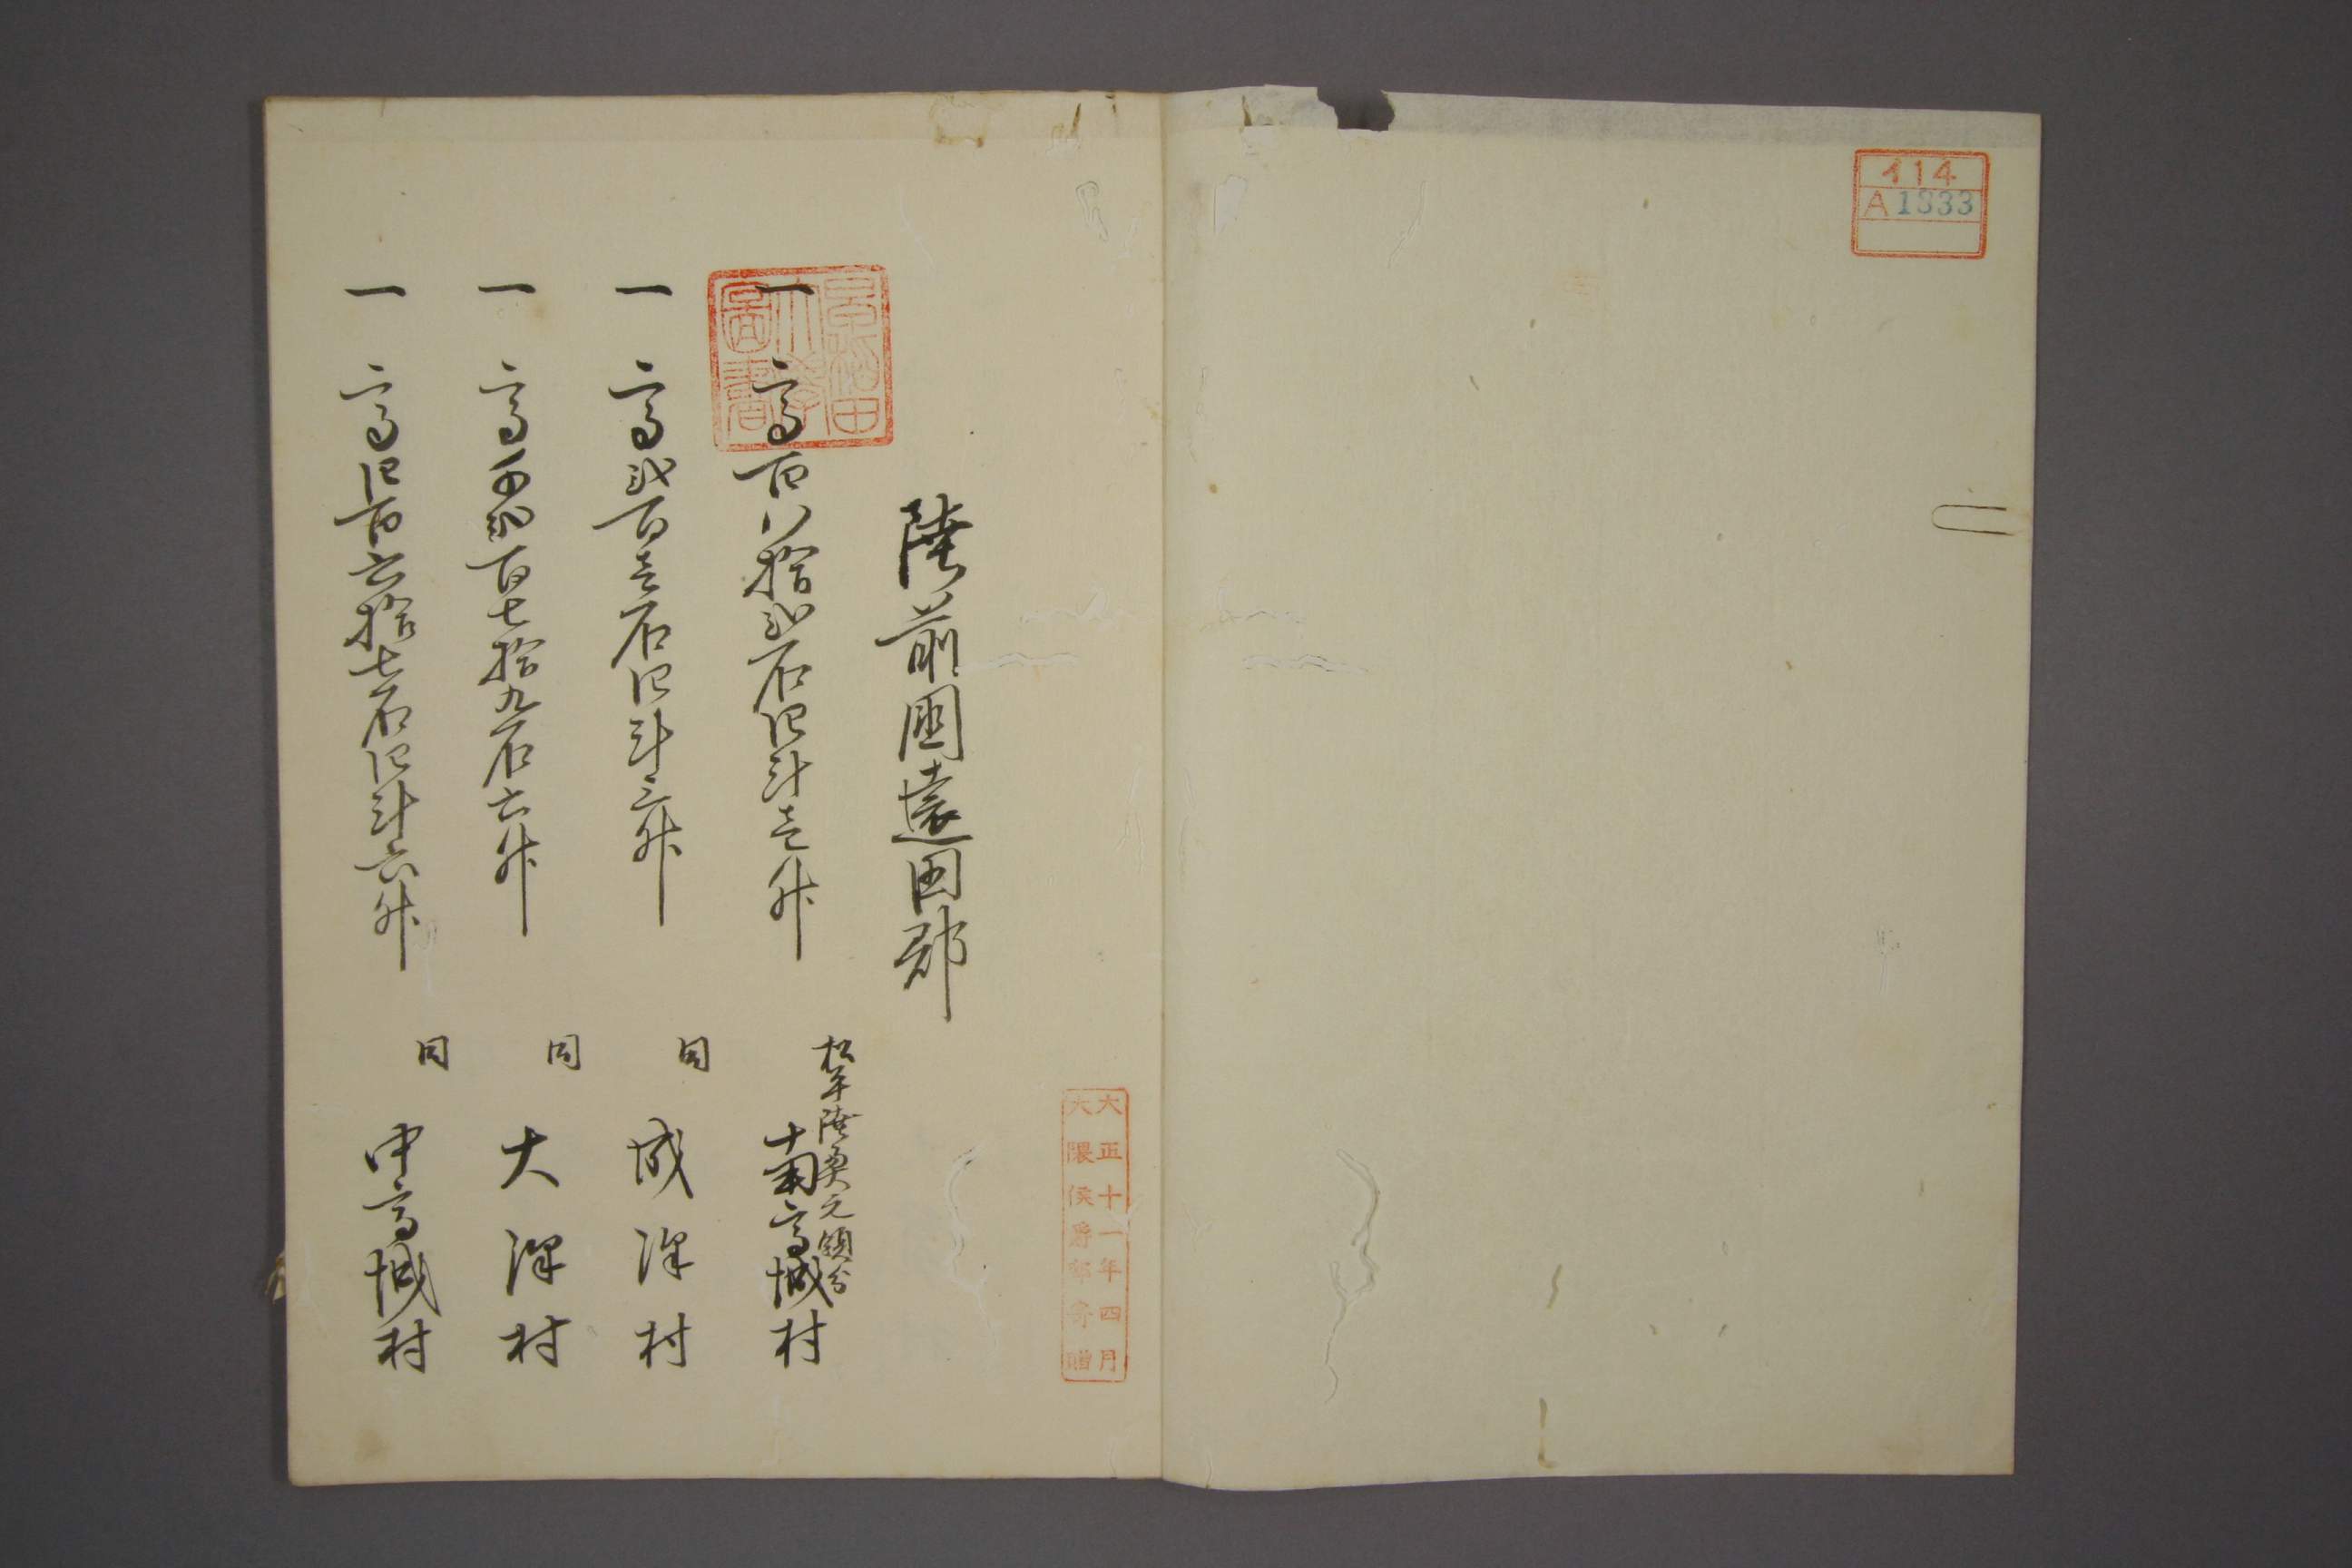 イ14
A1333
大正十一年四月
大隈侯爵邸寄贈
早稲田大學圖書
陸前國遠田郡
一高百八拾弐石四斗壱升
松平陸奥元領分
南高城村
一高弐百壱石四斗三升
同
成沢村
一高千弐百七拾九石六升
同
大沢村
一高四百六拾七石四斗六升
同
中高城村